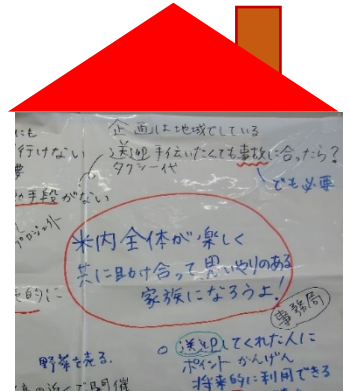 企画は地域でしている
にも
行けない
送迎 手伝いたくても事故に合ったら?
タクシー代
でも必要
手段がない
プロジェクト
米内全体が楽しく
共に助け合って思いやりのある
家族になろうよ!
的に
事務局
野菜を売る.
○ 送迎してくれた人に
ポイント かんげん
将来的に利用できる
の近くで開催